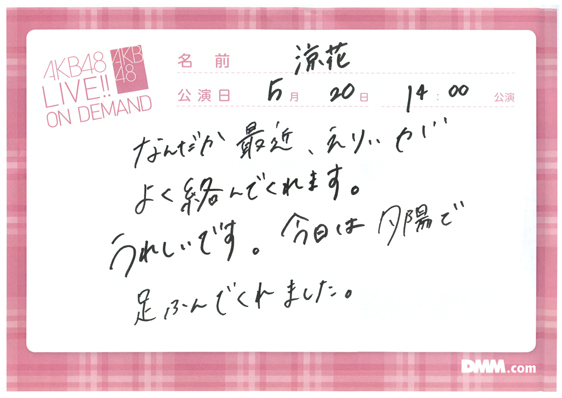 AKB48
LIVE!!
ON DEMAND
AKB
48
名前 涼花
公演日 5月 20日 14:00 公演
なんだか最近、えりぃが
よく絡んでくれます。
うれしいです。今日は夕陽で
足ふんでくれました。
DMM.com